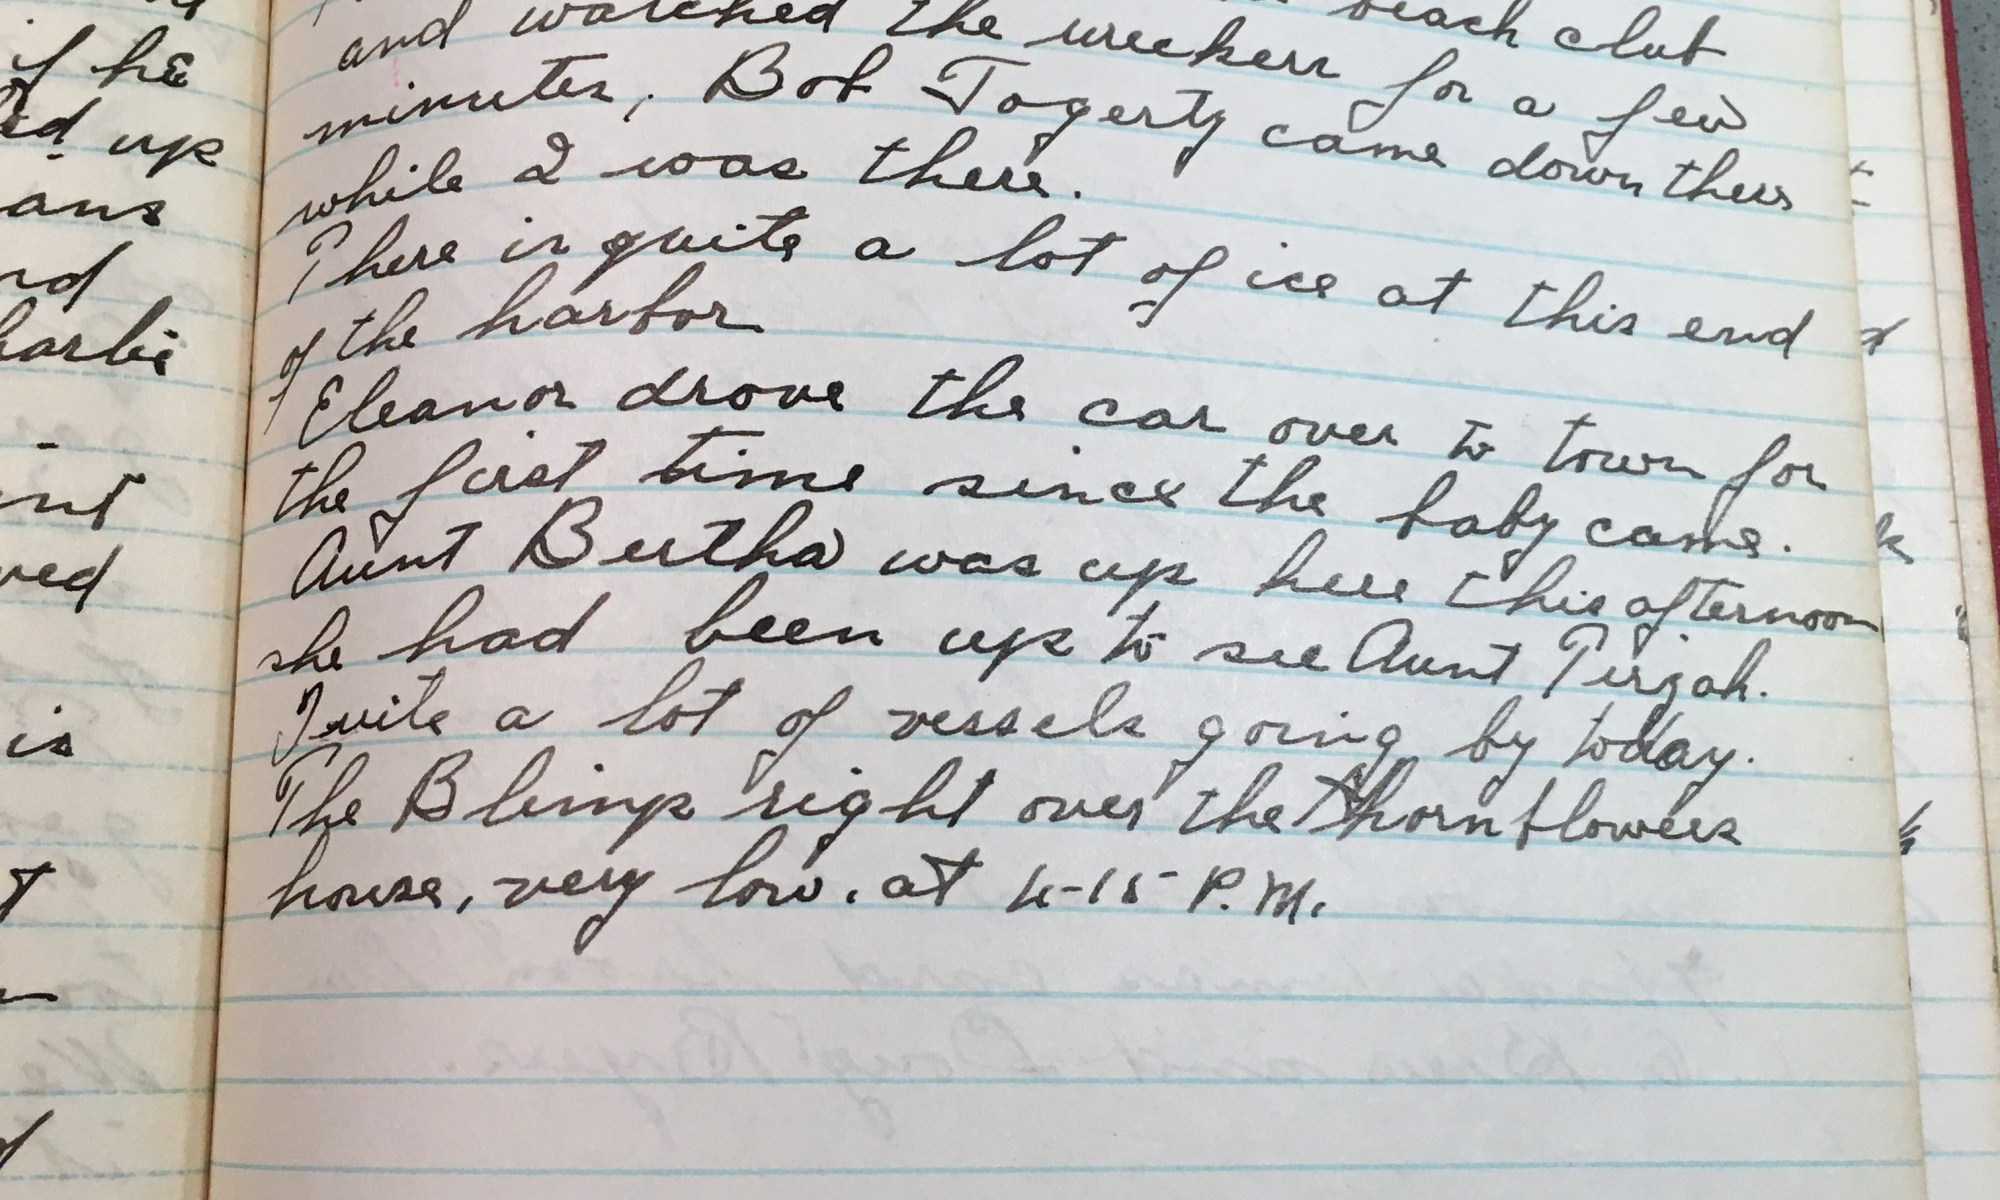 if he
ed up
ans
nd
harlie
int
ved
is
beach club
and watched the wreckers for a few
minutes, Bob Fogerty came down there
while I was there.
There is quite a lot of ice at this end
of the harbor
Eleanor drove the car over to town for
the first time since the baby came.
Aunt Bertha was up here this afternoon
she had been up to see Aunt Tirzah.
Quite a lot of vessels going by today.
The Blimp right over the Thornflowers
house, very low. at 4-15 P.M.